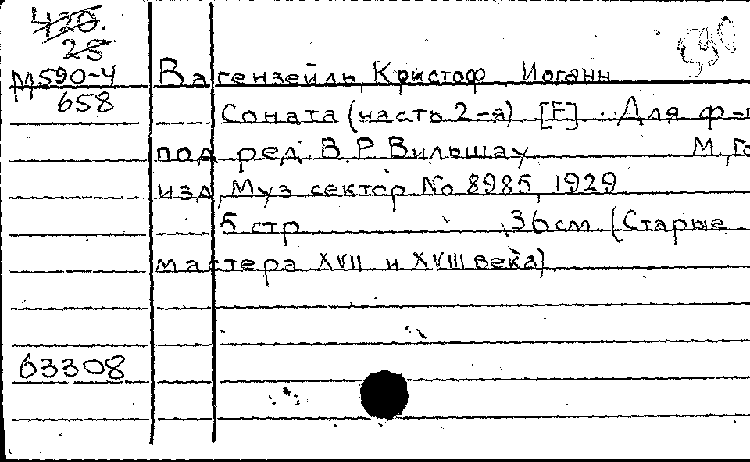 420.
25
М590-4
658
Вагензейль, Кристоф Иоганн
Соната (часть 2-я) [F]. Для ф-п
под ред. В.Р. Вильшау М., Го
изд, Муз сектор No 8985, 1929
5 стр 36см (Старые
мастера XVII и XVIII века)
63308